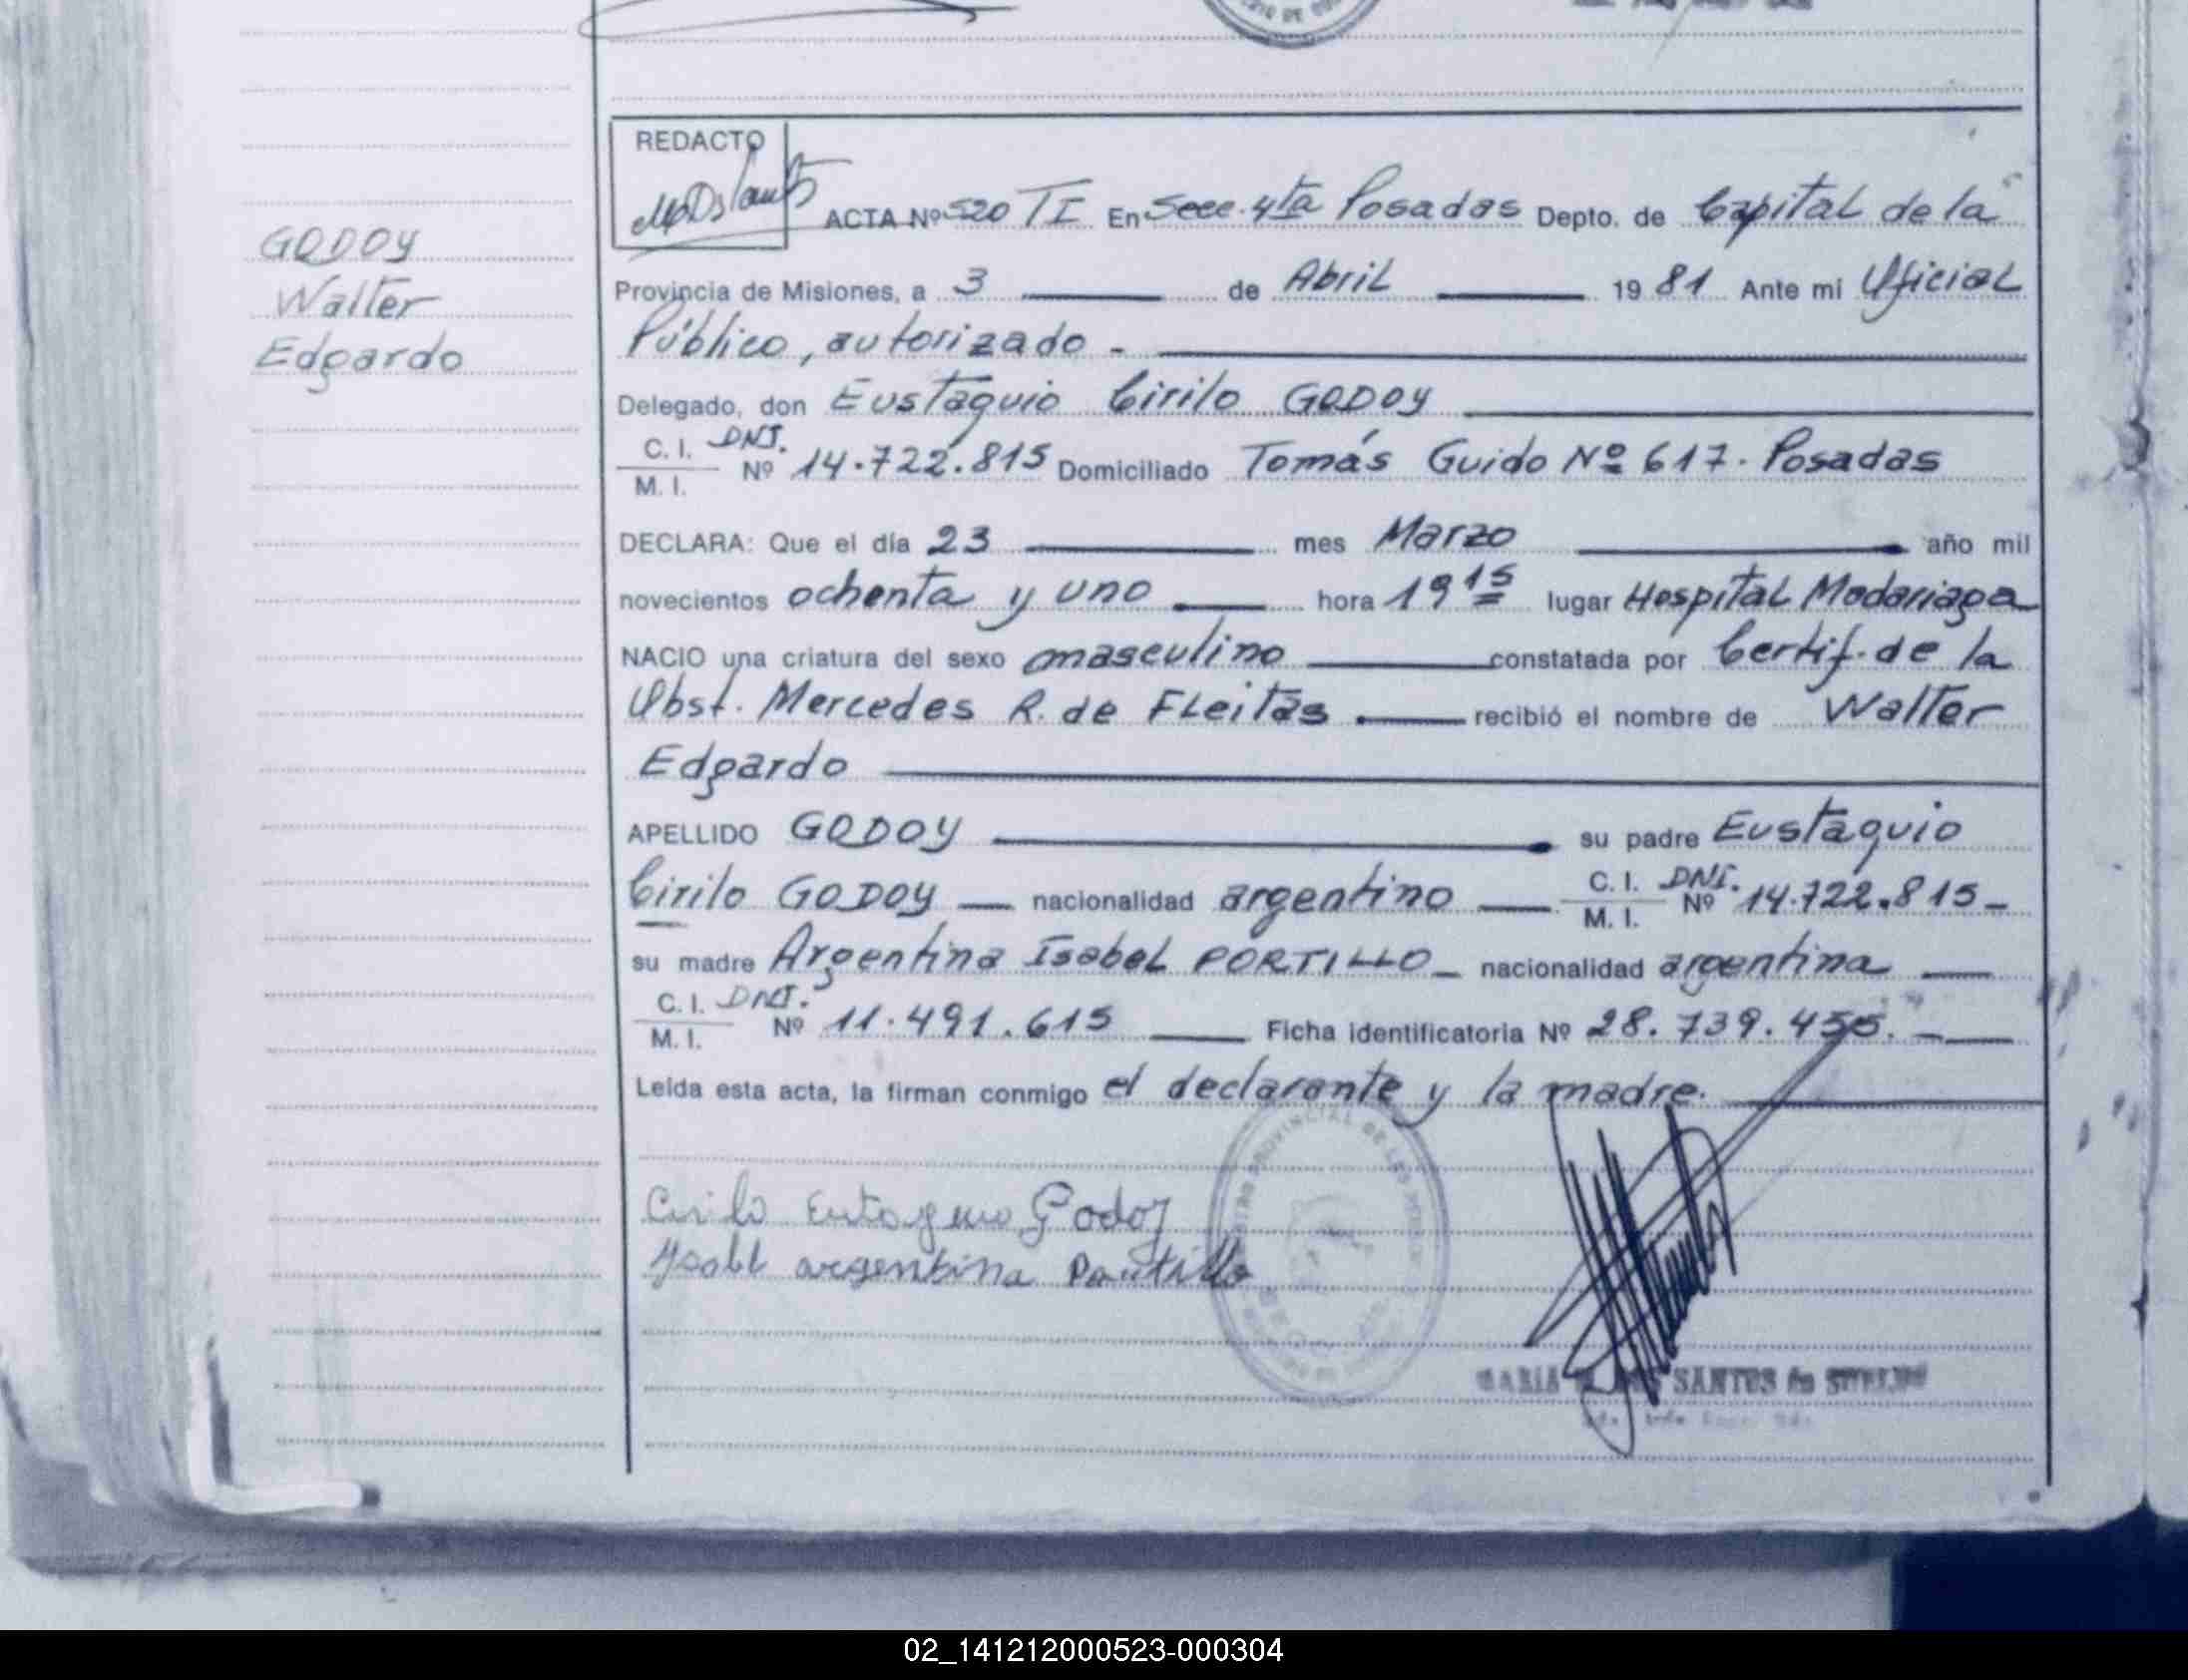 REDACTO
ACTA Nº 520 TI En Secc. 4ta Posadas Depto. de Capital de la
GODOY
Walter
Edgardo
Provincia de Misiones, a 3 de Abril 1981 Ante mi Oficial
Público, autorizado -
Delegado, don Eustaquio Cirilo GODOY
C. I. DNI.
M. I. Nº 14.722.815 Domiciliado Tomás Guido Nº 617. Posadas
DECLARA: Que el día 23 mes Marzo año mil
novecientos ochenta y uno hora 19 15 lugar Hospital Madariaga
NACIO una criatura del sexo masculino constatada por Certif. de la
Obst. Mercedes R. de FLeitas recibió el nombre de Walter
Edgardo
APELLIDO GODOY su padre Eustaquio
Cirilo GODOY nacionalidad argentino C. I. DNI. M. I. Nº 14.722.815
su madre Argentina Isabel PORTILLO nacionalidad argentina
C. I. DNI.
M. I. Nº 11.491.615 Ficha identificatoria Nº 28.739.455.
Leída esta acta, la firman conmigo el declarante y la madre.
Cirilo Eutaquio Godoy
Ysabel argentina Portillo
MARIA SANTOS de
02_141212000523-000304